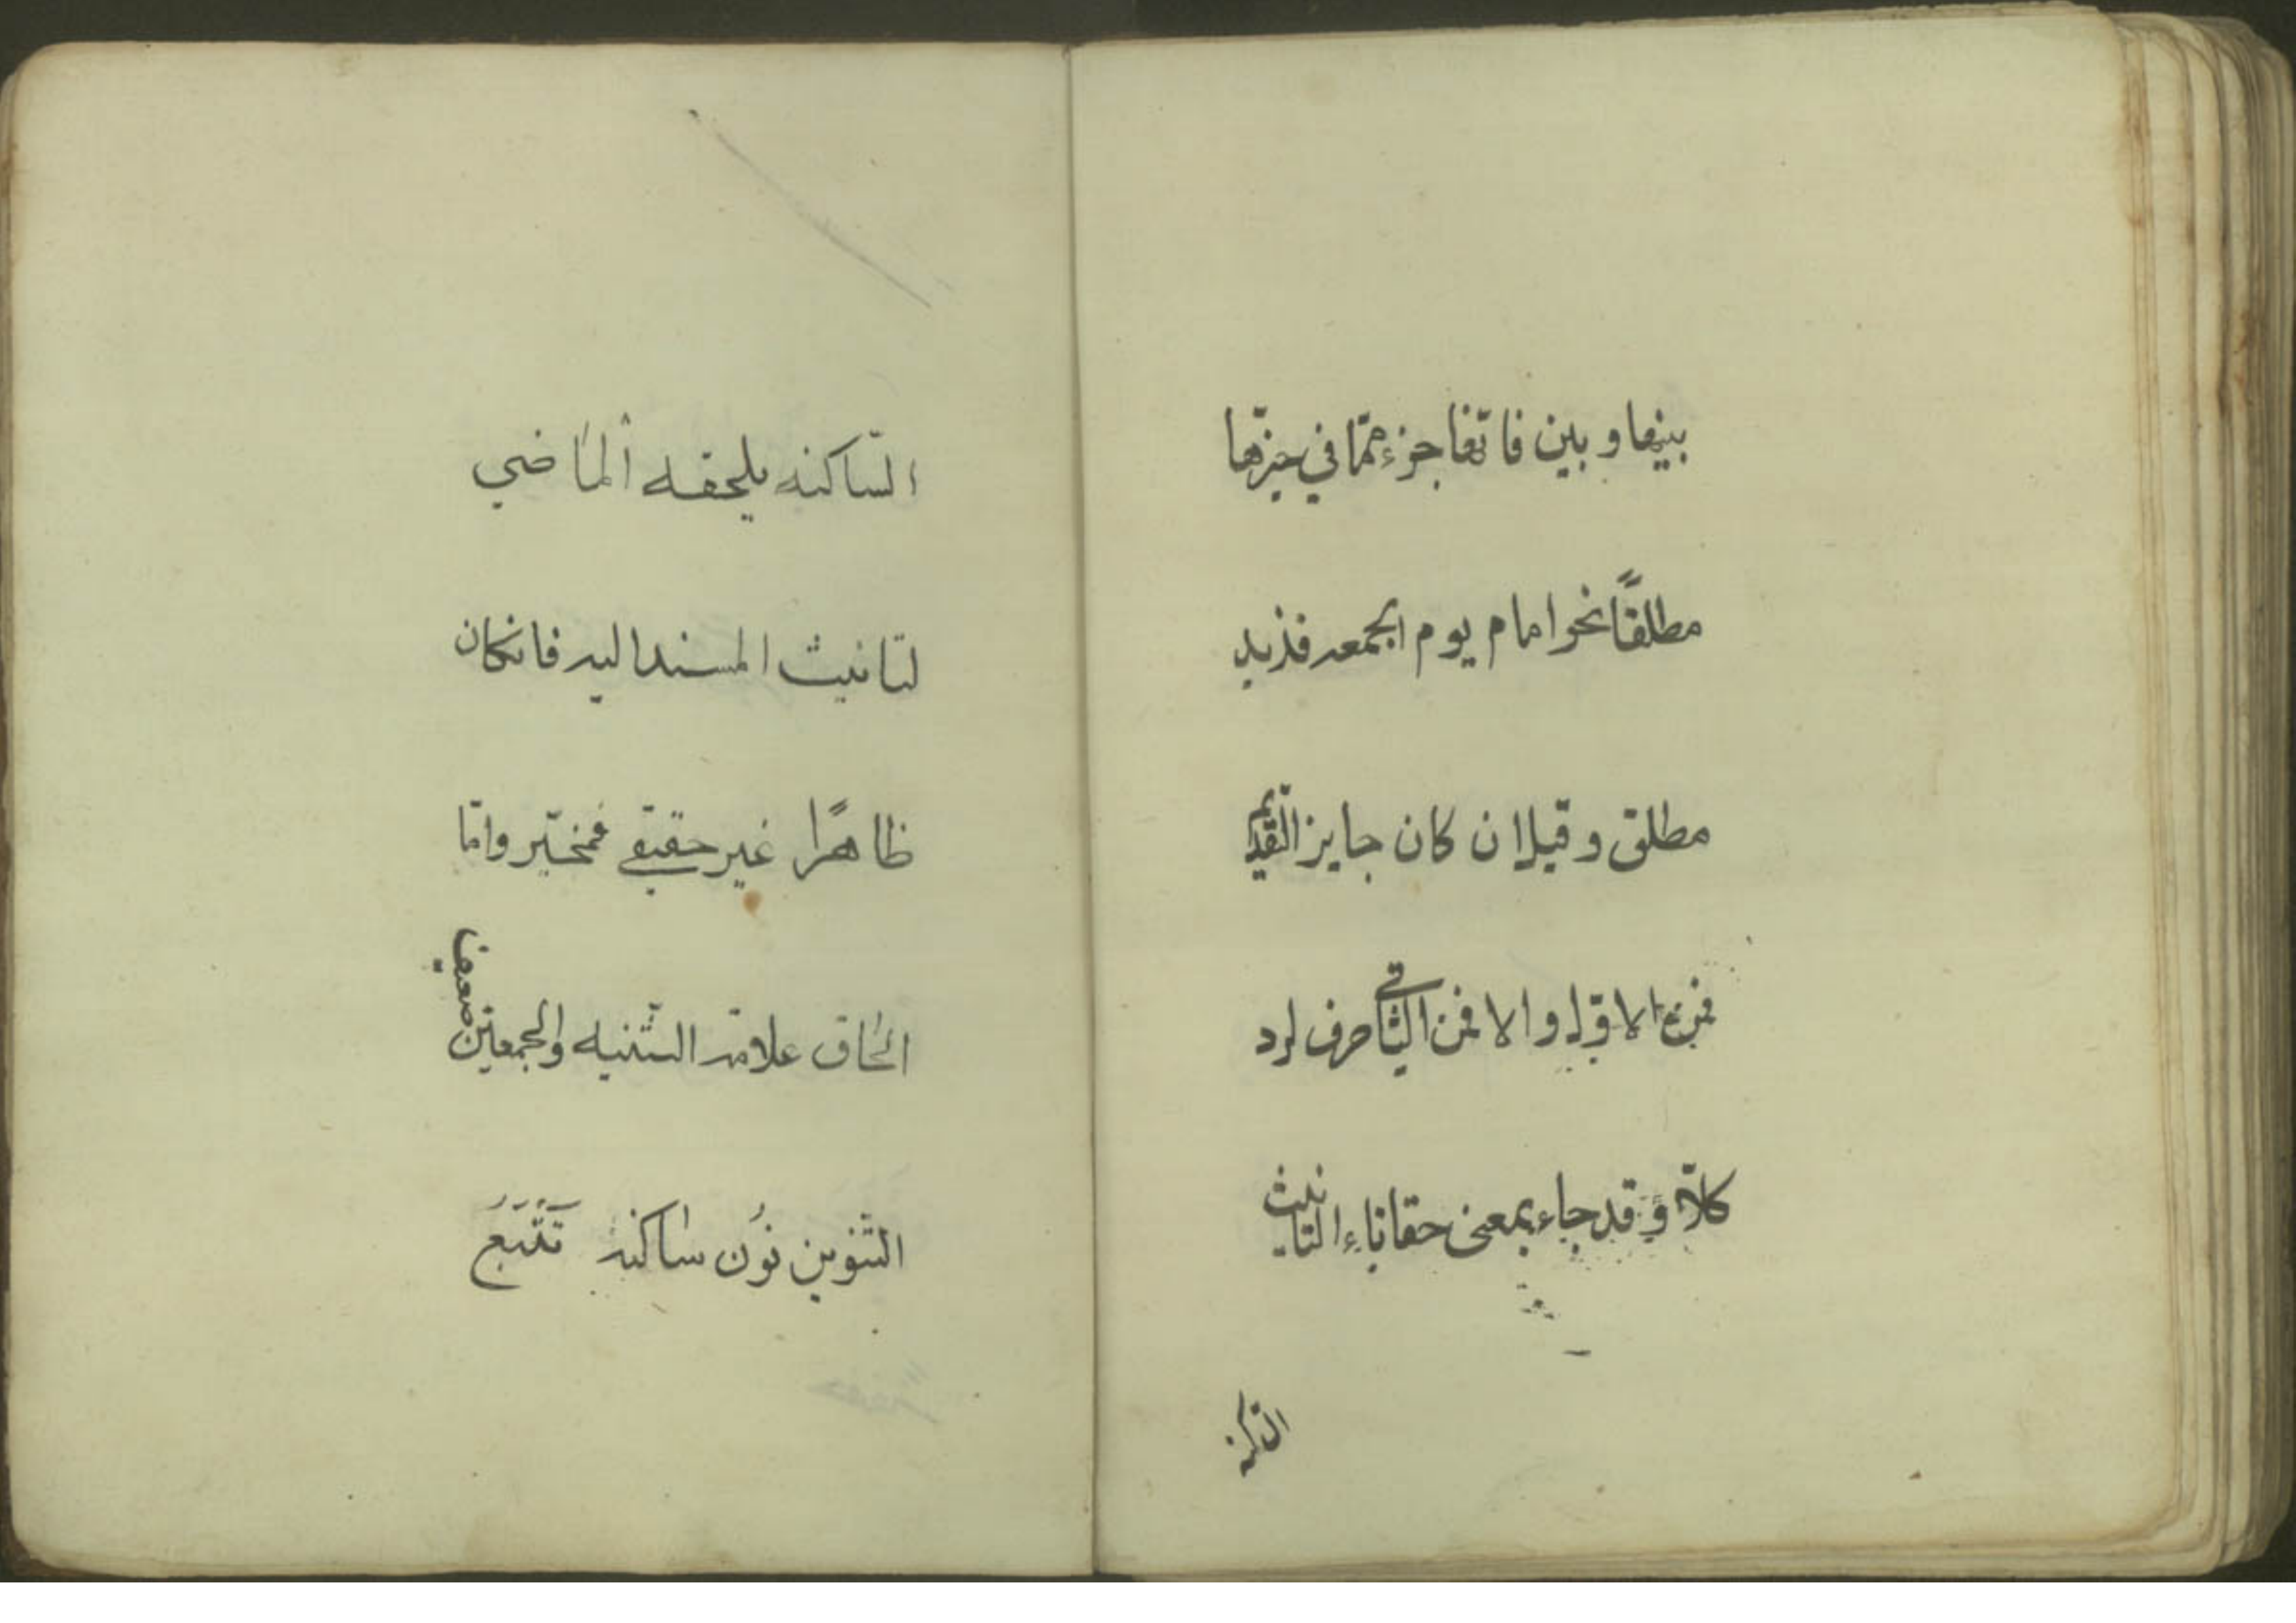 بينها و بين فائها جزء ممّا في حيزها
مطلقًا نحو امام يوم الجمعه فزيد
مطلق و قيل ان كان جايز التقديم
فمن الاوّل و الا فمن الثاني حرف لرد
كلّا و قد جاء بمعنى حقا تاء التانيث
السّاكنه يلحقه الماضي
لتانيث المسند اليه فانكان
ظاهرًا غير حقيقي فمخيّر وامّا
الحاق علامة التّثنيه والجمعين ضعيف
التّنوين نوُن ساكنه تَتْبَعُ